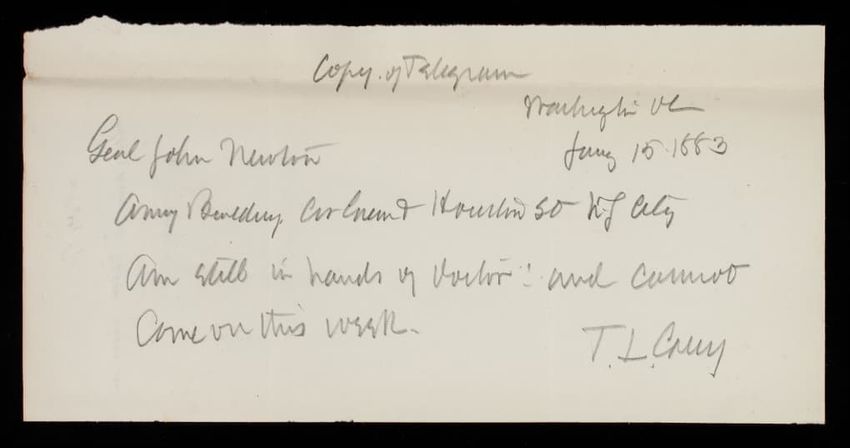 Copy of Telegram
Washington DC
Jany 15 1883
Genl John Newton
Army Building Cor Greene & Houston St N.Y City
Am still in hands of doctor: and cannot
Come on this week.
T. L. Casey